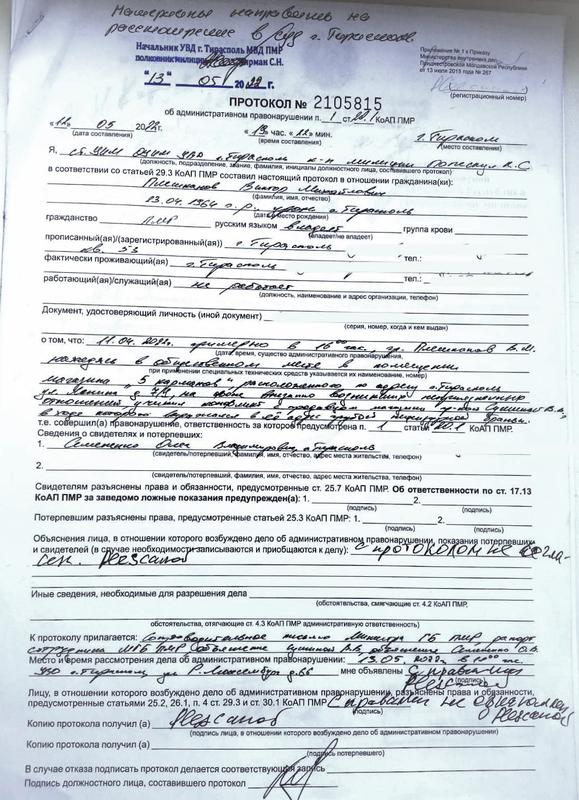 направить на
рассмотрение в суд г. Тирасполя.
Начальник УВД г. Тирасполь МВД ПМР
полковник милиции С.Н.
"13" 05 2022 г.
Приложение № 1 к Приказу
Министерства внутренних дел
Приднестровской Молдавской Республики
от 13 июля 2015 года № 267
(регистрационный номер)
ПРОТОКОЛ № 2105815
об административном правонарушении п. 1 ст. 20.1 КоАП ПМР
«12» 05 2022г. час. мин. г. Тирасполь
(дата составления) (время составления) (место составления)
Я, ст. УИМ УВД г. Тирасполь к-н милиции С.
(должность, подразделение, звание, фамилия, инициалы должностного лица, составившего протокол)
в соответствии со статьей 29.3 КоАП ПМР составил настоящий протокол в отношении гражданина(ки):
Плешканов Виктор Михайлович
(фамилия, имя, отчество)
.04.1964 г.р., г. Тирасполь
(дата и место рождения)
гражданство ПМР русским языком владеет группа крови
(владеет/не владеет)
прописанный(ая)/зарегистрированный(ая)) г. Тирасполь
кв. 53
фактически проживающий(ая) г. Тирасполь тел.:
работающий(ая)/служащий(ая) не работает
(должность, наименование и адрес организации, телефон)
Документ, удостоверяющий личность (иной документ)
(серия, номер, когда и кем выдан)
о том, что: 11.04.2022г. примерно в 16 00 час., гр. Плешканов В.М.
(дата, время, существо административного правонарушения,
находясь в общественном месте в помещении
при применении специальных технических средств указывается их наименование, номер)
магазина "5 карманов" расположенного по адресу г. Тирасполь
ул. Ленина на почве внезапно возникших неприязненных
отношений учинил конфликт с продавцом магазина гр-кой В.В.,
в ходе которого выражался в её адрес грубой нецензурной бранью.
т.е. совершил(а) правонарушение, ответственность за которое предусмотрена п. 1 статьи 20.1 КоАП ПМР.
Сведения о свидетелях и потерпевших:
1. Семененко Олег Владимирович г. Тирасполь
(свидетель/потерпевший, фамилия, имя, отчество, адрес места жительства, телефон)
2.
(свидетель/потерпевший, фамилия, имя, отчество, адрес места жительства, телефон)
Свидетелям разъяснены права и обязанности, предусмотренные ст. 25.7 КоАП ПМР. Об ответственности по ст. 17.13
КоАП ПМР за заведомо ложные показания предупрежден(а): 1. 2.
(подпись) (подпись)
Потерпевшим разъяснены права, предусмотренные статьей 25.3 КоАП ПМР: 1. 2.
(подпись) (подпись)
Объяснения лица, в отношении которого возбуждено дело об административном правонарушении, показания потерпевших
и свидетелей (в случае необходимости записываются и приобщаются к делу): с протоколом не согла-
сен.
Иные сведения, необходимые для разрешения дела
(обстоятельства, смягчающие ст. 4.2 КоАП ПМР,
обстоятельства, отягчающие ст. 4.3 КоАП ПМР административную ответственность)
К протоколу прилагается: Сопроводительное письмо Министра ГБ ПМР рапорт
сотрудника МГБ ПМР объяснение В.В. объяснение Семененко О.В.
Место и время рассмотрения дела об административном правонарушении: 13.05.2022г. в 10 00 час.
УВД г. Тирасполь ул. Р. Люксембург д. 66 мне объявлены
(подпись)
Лицу, в отношении которого возбуждено дело об административном правонарушении, разъяснены права и обязанности,
предусмотренные статьями 25.2, 26.1, п. 4 ст. 29.3 и ст. 30.1 КоАП ПМР С правами не ознакомлен
(подпись)
Копию протокола получил (а)
(подпись лица, в отношении которого возбуждено дело об административном правонарушении)
Копию протокола получил (а)
(подпись потерпевшего)
В случае отказа подписать протокол делается соответствующая запись
Подпись должностного лица, составившего протокол